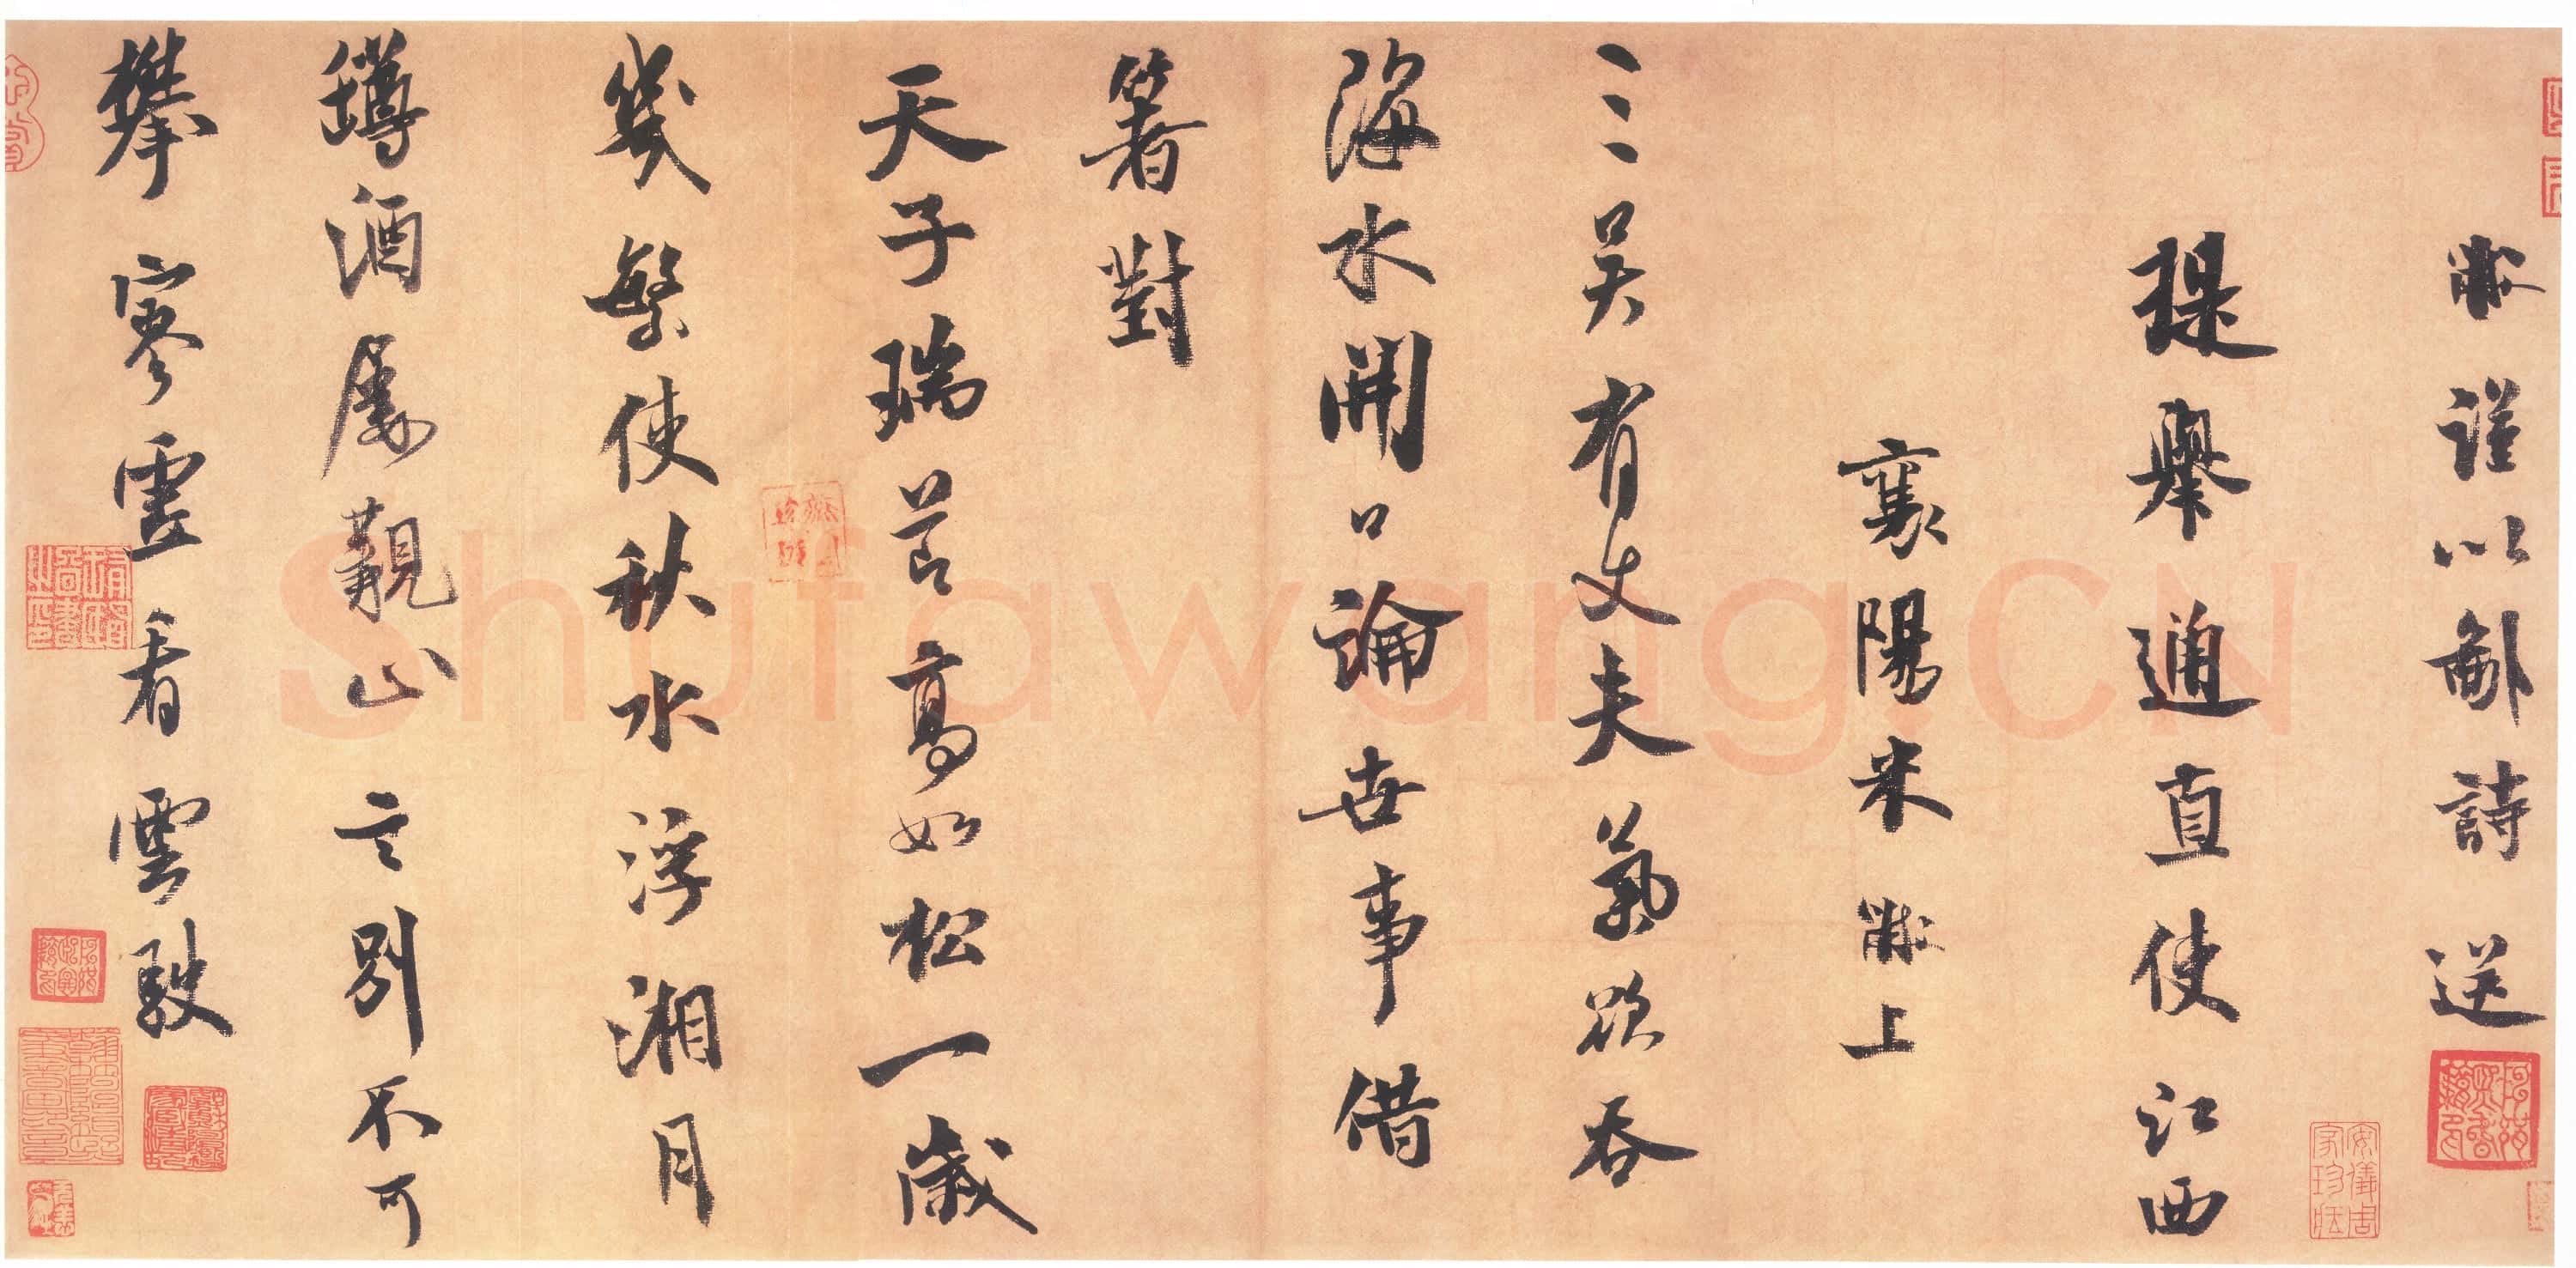 黻謹以鄙詩送
提舉通直使江西
襄陽米黻上
三吳有丈夫氣欲吞
海水開口論世事借
箸對
天子瑞節高如松一歲
幾繁使秋水浮湘月
罇酒屢觀山言別不可
攀寥雲看雲駛
Shufawang.CN